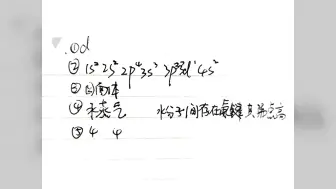 .①d
② 1s² 2s² 2p⁴ 3s² 3p⁶ 3d¹ 4s²
③ 四面体
④ 水蒸气 水分子间存在氢键 其沸点高
⑤ 4 4